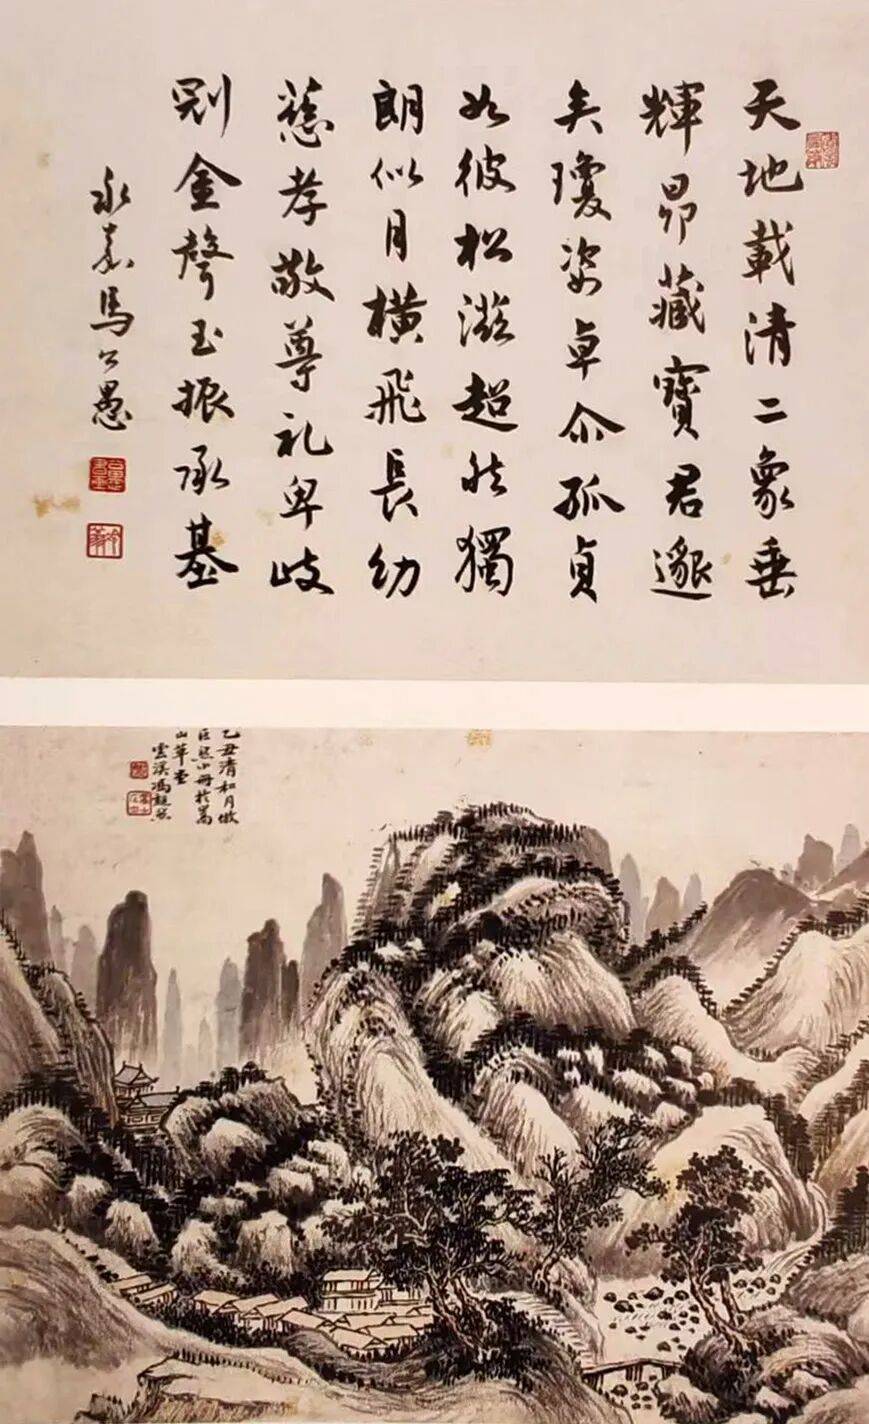 天地載清二象垂
輝昴藏寶君邈
矣瓊姿卓尒孤貞
如彼松滋超然獨
朗似月橫飛長幼
慈孝敬尊礼卑歧
金聲玉振承基
永嘉馬公愚
乙丑清和月倣
巨然小冊於嵩
山草堂
雲溪馮超然